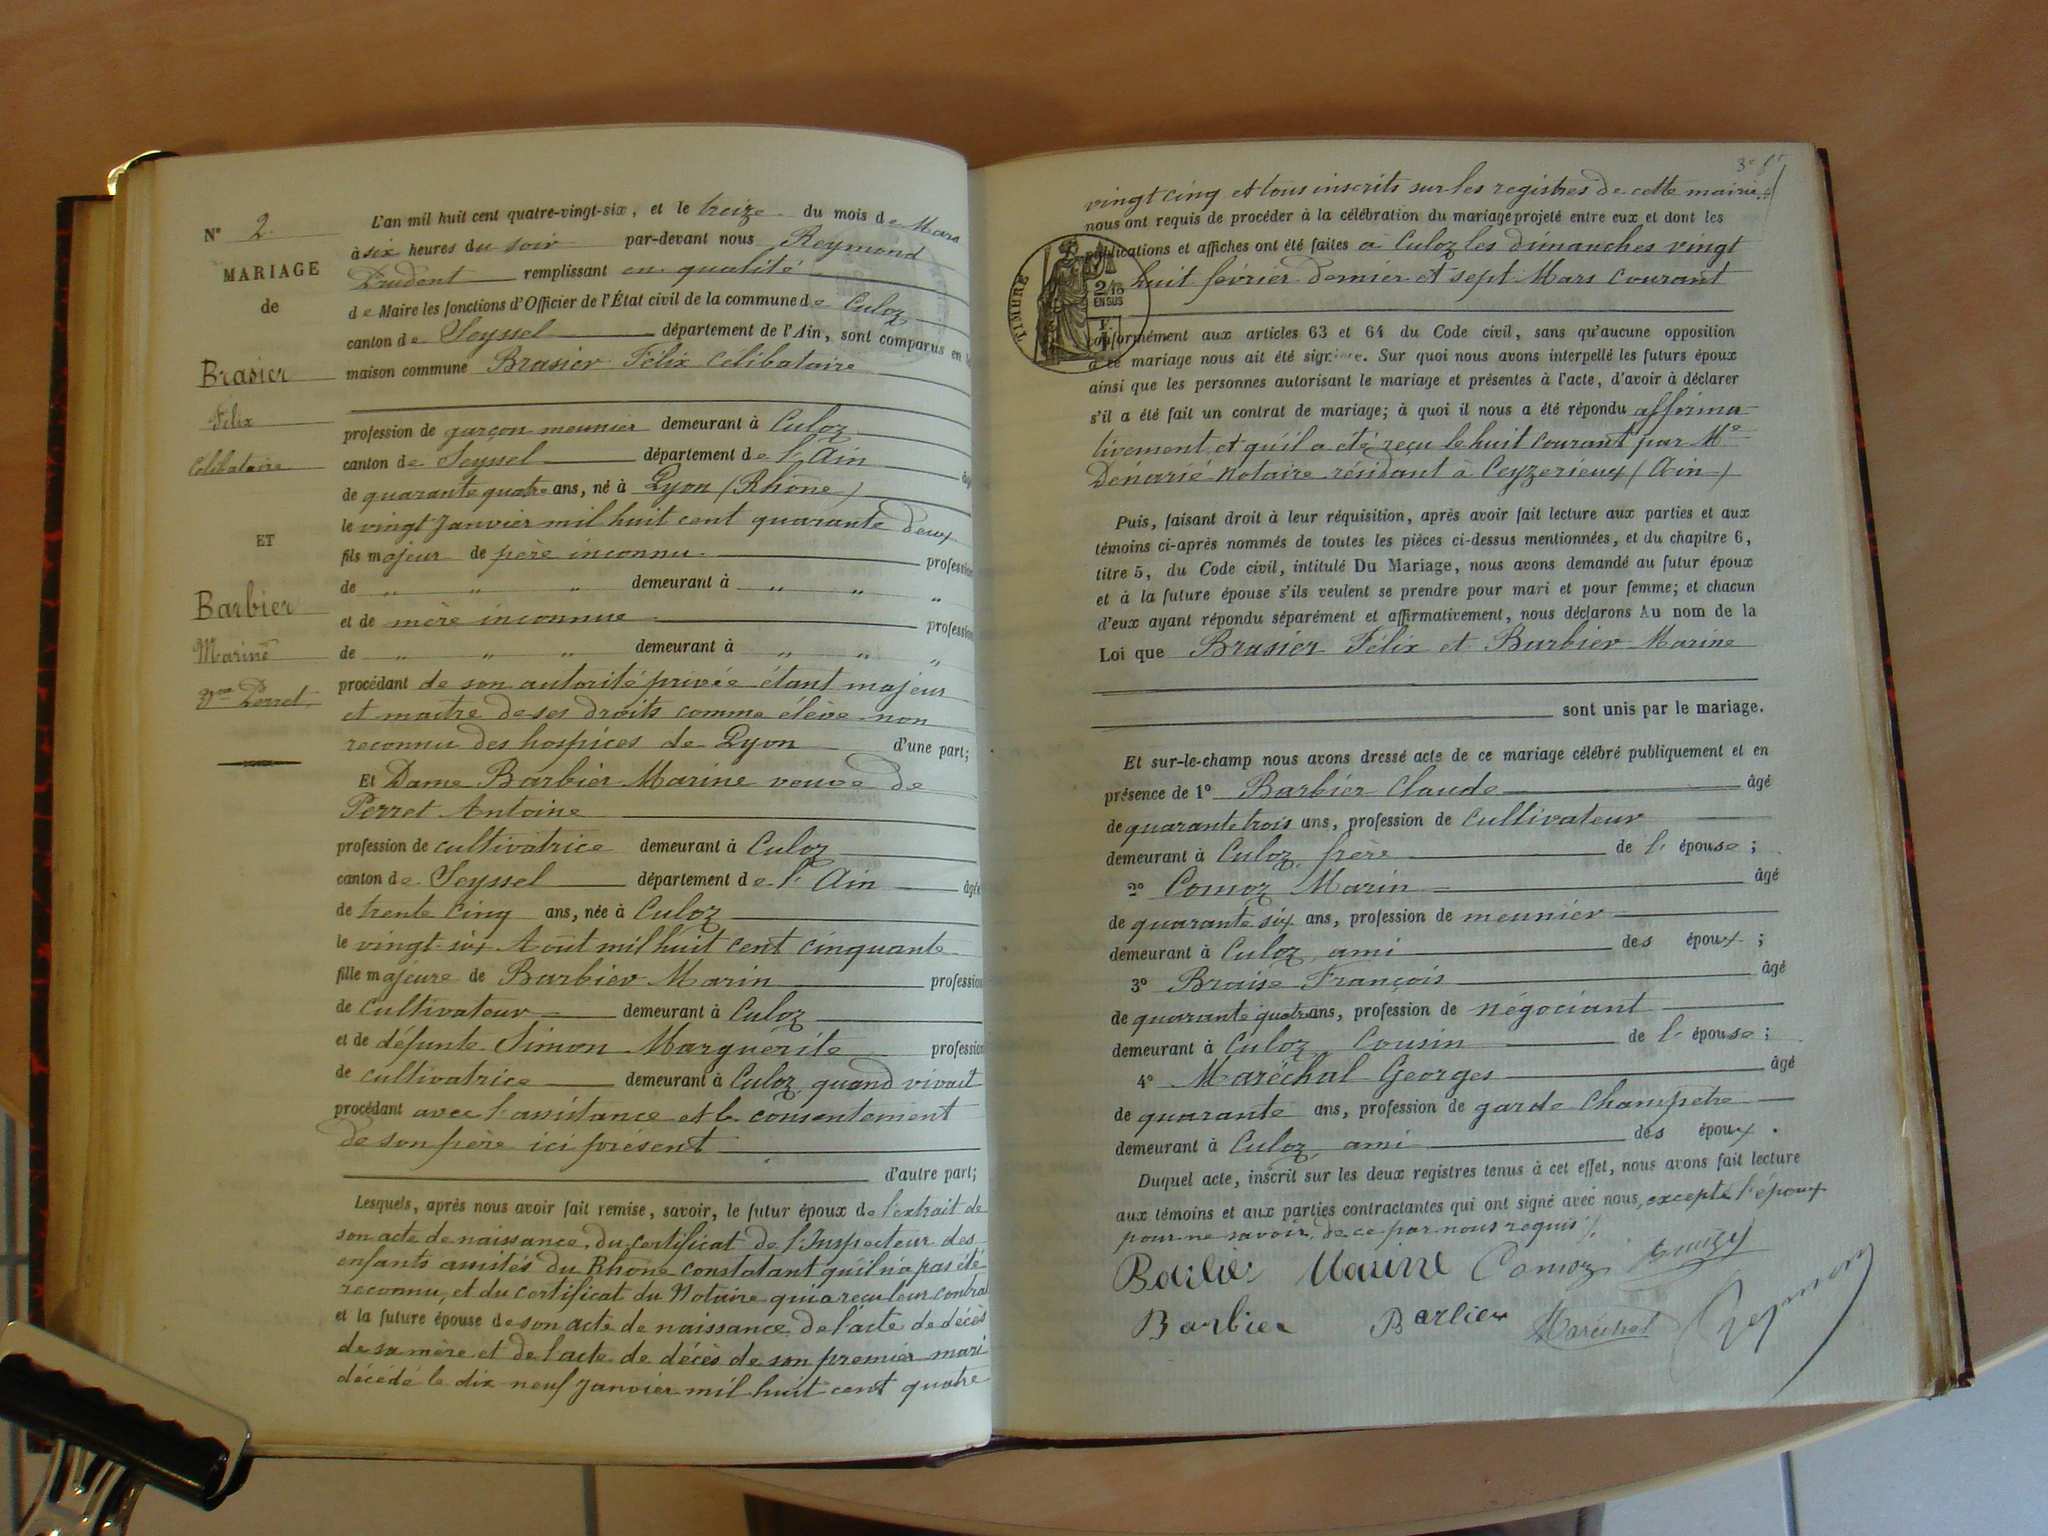 N° 2.
MARIAGE
de
Brasier
Félix
Célibataire
ET
Barbier
Marine
Vve Perret
L'an mil huit cent quatre-vingt-six, et le treize du mois de Mars
à six heures du soir par-devant nous Reymond
Prudent remplissant en qualité
de Maire les fonctions d'Officier de l'État civil de la commune de Culoz
canton de Seyssel département de l'Ain, sont comparus en la
maison commune Brasier Félix célibataire
profession de garçon meunier demeurant à Culoz
canton de Seyssel département de l'Ain âgé
de quarante quatre ans, né à Lyon (Rhône)
le vingt Janvier mil huit cent quarante deux
fils majeur de père inconnu profession
de " " " demeurant à " " "
et de mère inconnue profession
de " " " demeurant à " " "
procédant de son autorité privée étant majeur
et maître de ses droits comme élève non
reconnu des hospices de Lyon d'une part;
Et Dame Barbier Marine veuve de
Perret Antoine
profession de cultivatrice demeurant à Culoz
canton de Seyssel département de l'Ain âgée
de trente cinq ans, née à Culoz
le vingt-six Août mil huit cent cinquante
fille majeure de Barbier Marin profession
de cultivateur demeurant à Culoz
et de défunte Simon Marguerite profession
de cultivatrice demeurant à Culoz quand vivait
procédant avec l'assistance et le consentement
de son père ici présent
d'autre part;
Lesquels, après nous avoir fait remise, savoir, le futur époux de l'extrait de
son acte de naissance, du certificat de l'Inspecteur des
enfants assistés du Rhône constatant qu'il n'a pas été
reconnu, et du certificat du Notaire qui a reçu leur contrat
et la future épouse de son acte de naissance, de l'acte de décès
de sa mère et de l'acte de décès de son premier mari
décédé le dix neuf Janvier mil huit cent quatre
vingt cinq et tous inscrits sur les registres de cette mairie
nous ont requis de procéder à la célébration du mariage projeté entre eux et dont les
publications et affiches ont été faites à Culoz les dimanches vingt
huit février dernier et sept Mars courant
TIMBRE
2/10
EN SUS
conformément aux articles 63 et 64 du Code civil, sans qu'aucune opposition
à ce mariage nous ait été signifiée. Sur quoi nous avons interpellé les futurs époux
ainsi que les personnes autorisant le mariage et présentes à l'acte, d'avoir à déclarer
s'il a été fait un contrat de mariage; à quoi il nous a été répondu affirma-
tivement et qu'il a été reçu le huit courant par Me
Dénarié Notaire résidant à Ceyzerieux (Ain)
Puis, faisant droit à leur réquisition, après avoir fait lecture aux parties et aux
témoins ci-après nommés de toutes les pièces ci-dessus mentionnées, et du chapitre 6,
titre 5, du Code civil, intitulé Du Mariage, nous avons demandé au futur époux
et à la future épouse s'ils veulent se prendre pour mari et pour femme; et chacun
d'eux ayant répondu séparément et affirmativement, nous déclarons Au nom de la
Loi que Brasier Félix et Barbier Marine
sont unis par le mariage.
Et sur-le-champ nous avons dressé acte de ce mariage célébré publiquement et en
présence de 1° Barbier Claude âgé
de quarante trois ans, profession de cultivateur
demeurant à Culoz, frère de l'épouse;
2° Comoz Marin âgé
de quarante six ans, profession de meunier
demeurant à Culoz ami des époux;
3° Braise François âgé
de quarante quatre ans, profession de négociant
demeurant à Culoz Cousin de l'épouse;
4° Maréchal Georges âgé
de quarante ans, profession de garde Champêtre
demeurant à Culoz, ami des époux.
Duquel acte, inscrit sur les deux registres tenus à cet effet, nous avons fait lecture
aux témoins et aux parties contractantes qui ont signé avec nous, excepté l'époux
pour ne savoir, de ce par nous requis.
Barbier Marine Comoz
Barbier Barbier Maréchal Reymond